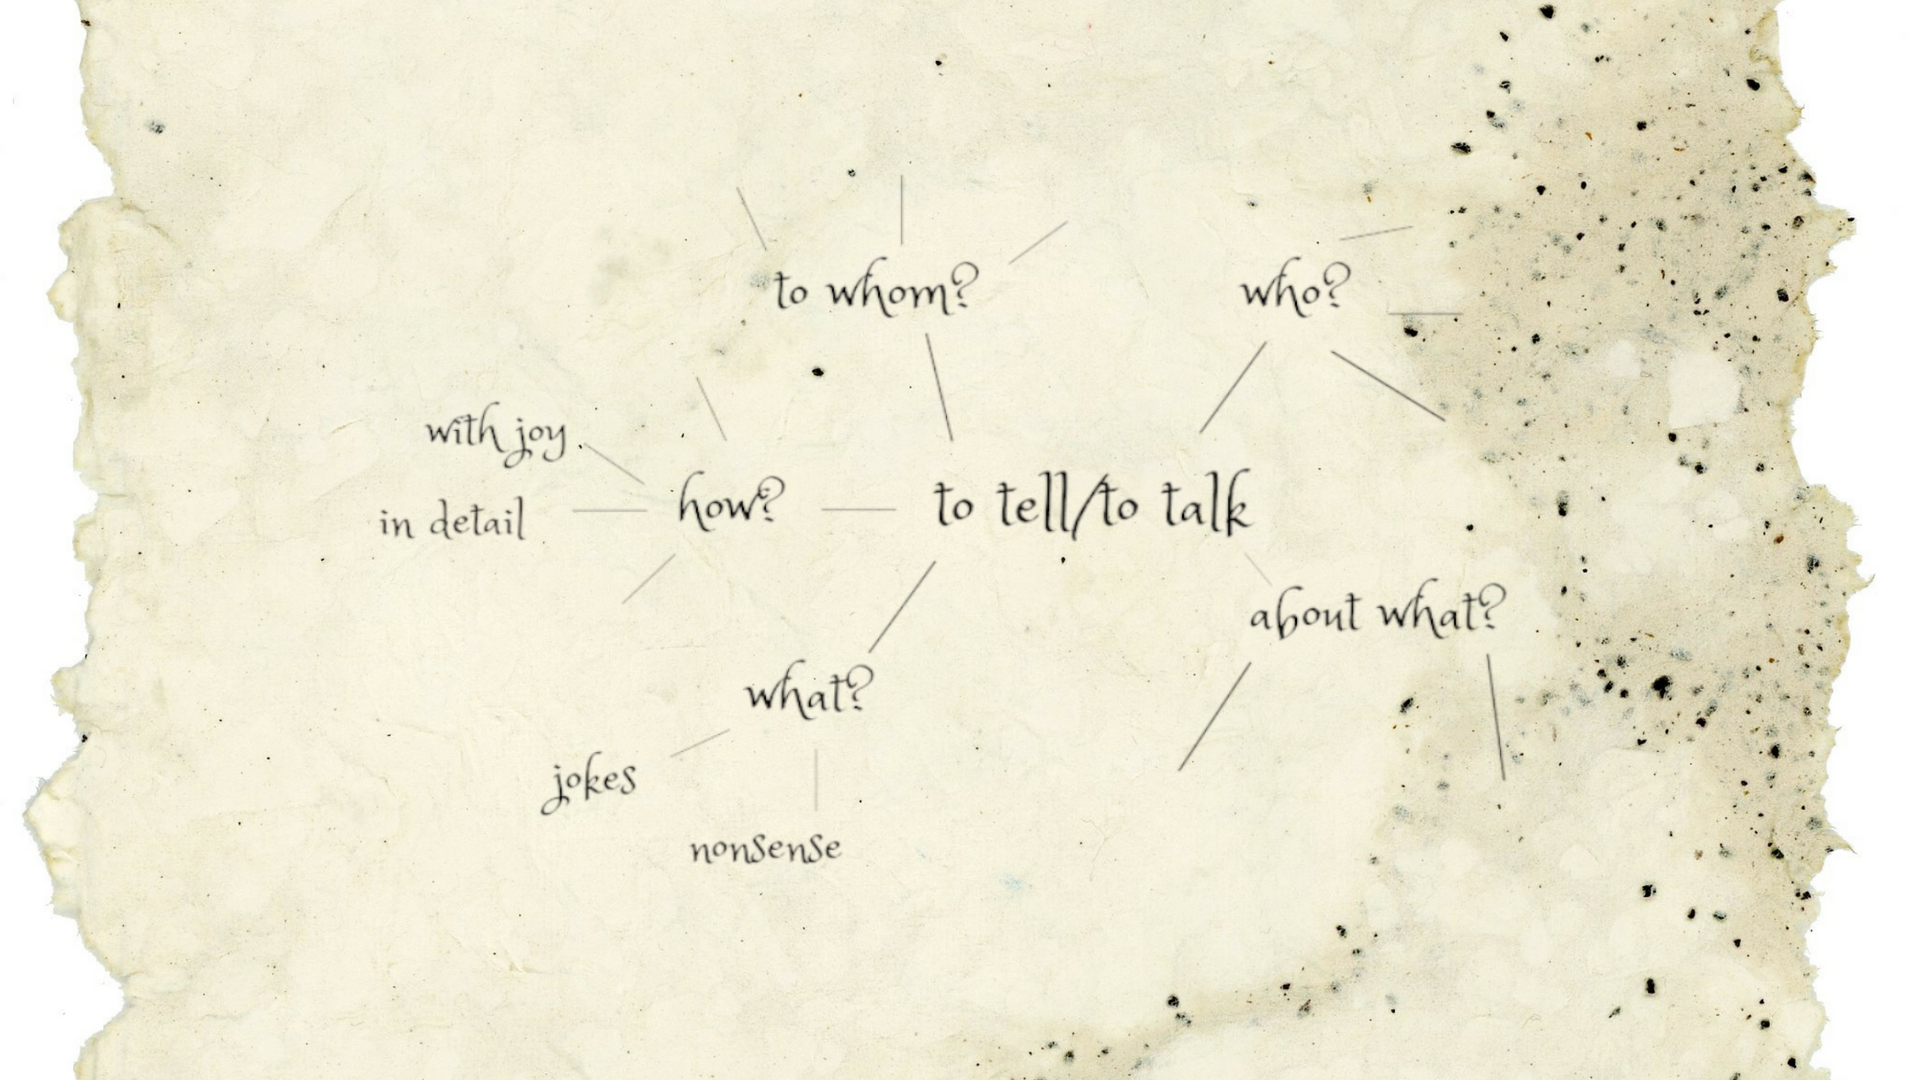 to whom?
who?
with joy
how?
to tell/to talk
in detail
about what?
what?
jokes
nonsense